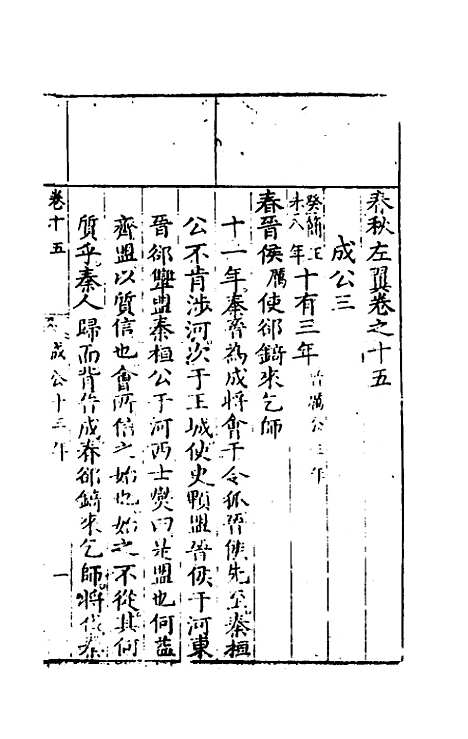 春秋左翼卷之十五
成公三
癸未簡王八年十有三年晉厲公三年
春晉侯厲使郤錡來乞師
十一年秦晉為成將會于令狐晉侯先至秦桓
公不肯涉河次于王城使史顆盟晉侯于河東
晉郤犫盟秦桓公于河西士燮曰是盟也何益
齊盟以質信也會所信之始也始之不從其何
質乎秦人歸而背晉成春郤錡來乞師將伐秦
卷十五 成公十三年 一